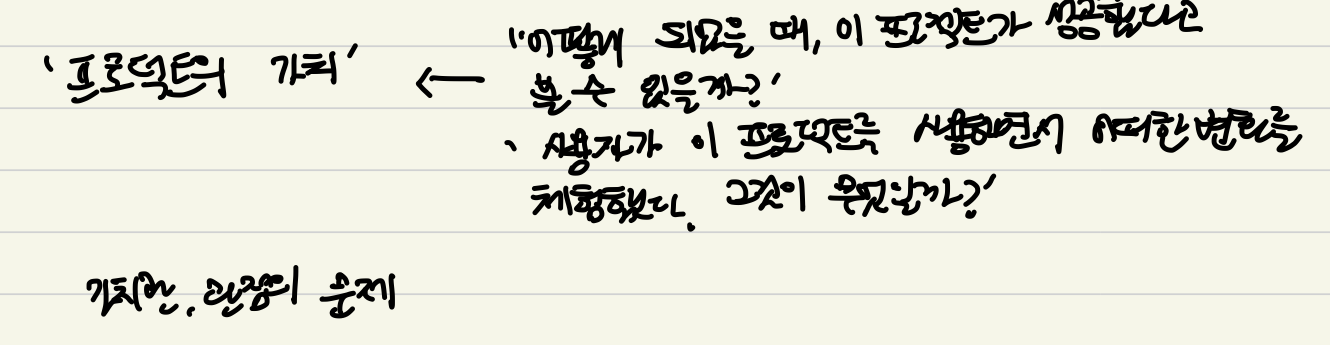 '프로덕트의 가치' ← "어떻게 되었을 때, 이 프로젝트가 성공했다고
볼 수 있을까?'
' 사용자가 이 프로덕트를 사용하면서 어떠한 변화를
체험했다. 그것이 무엇일까?'
가치관, 관점의 문제